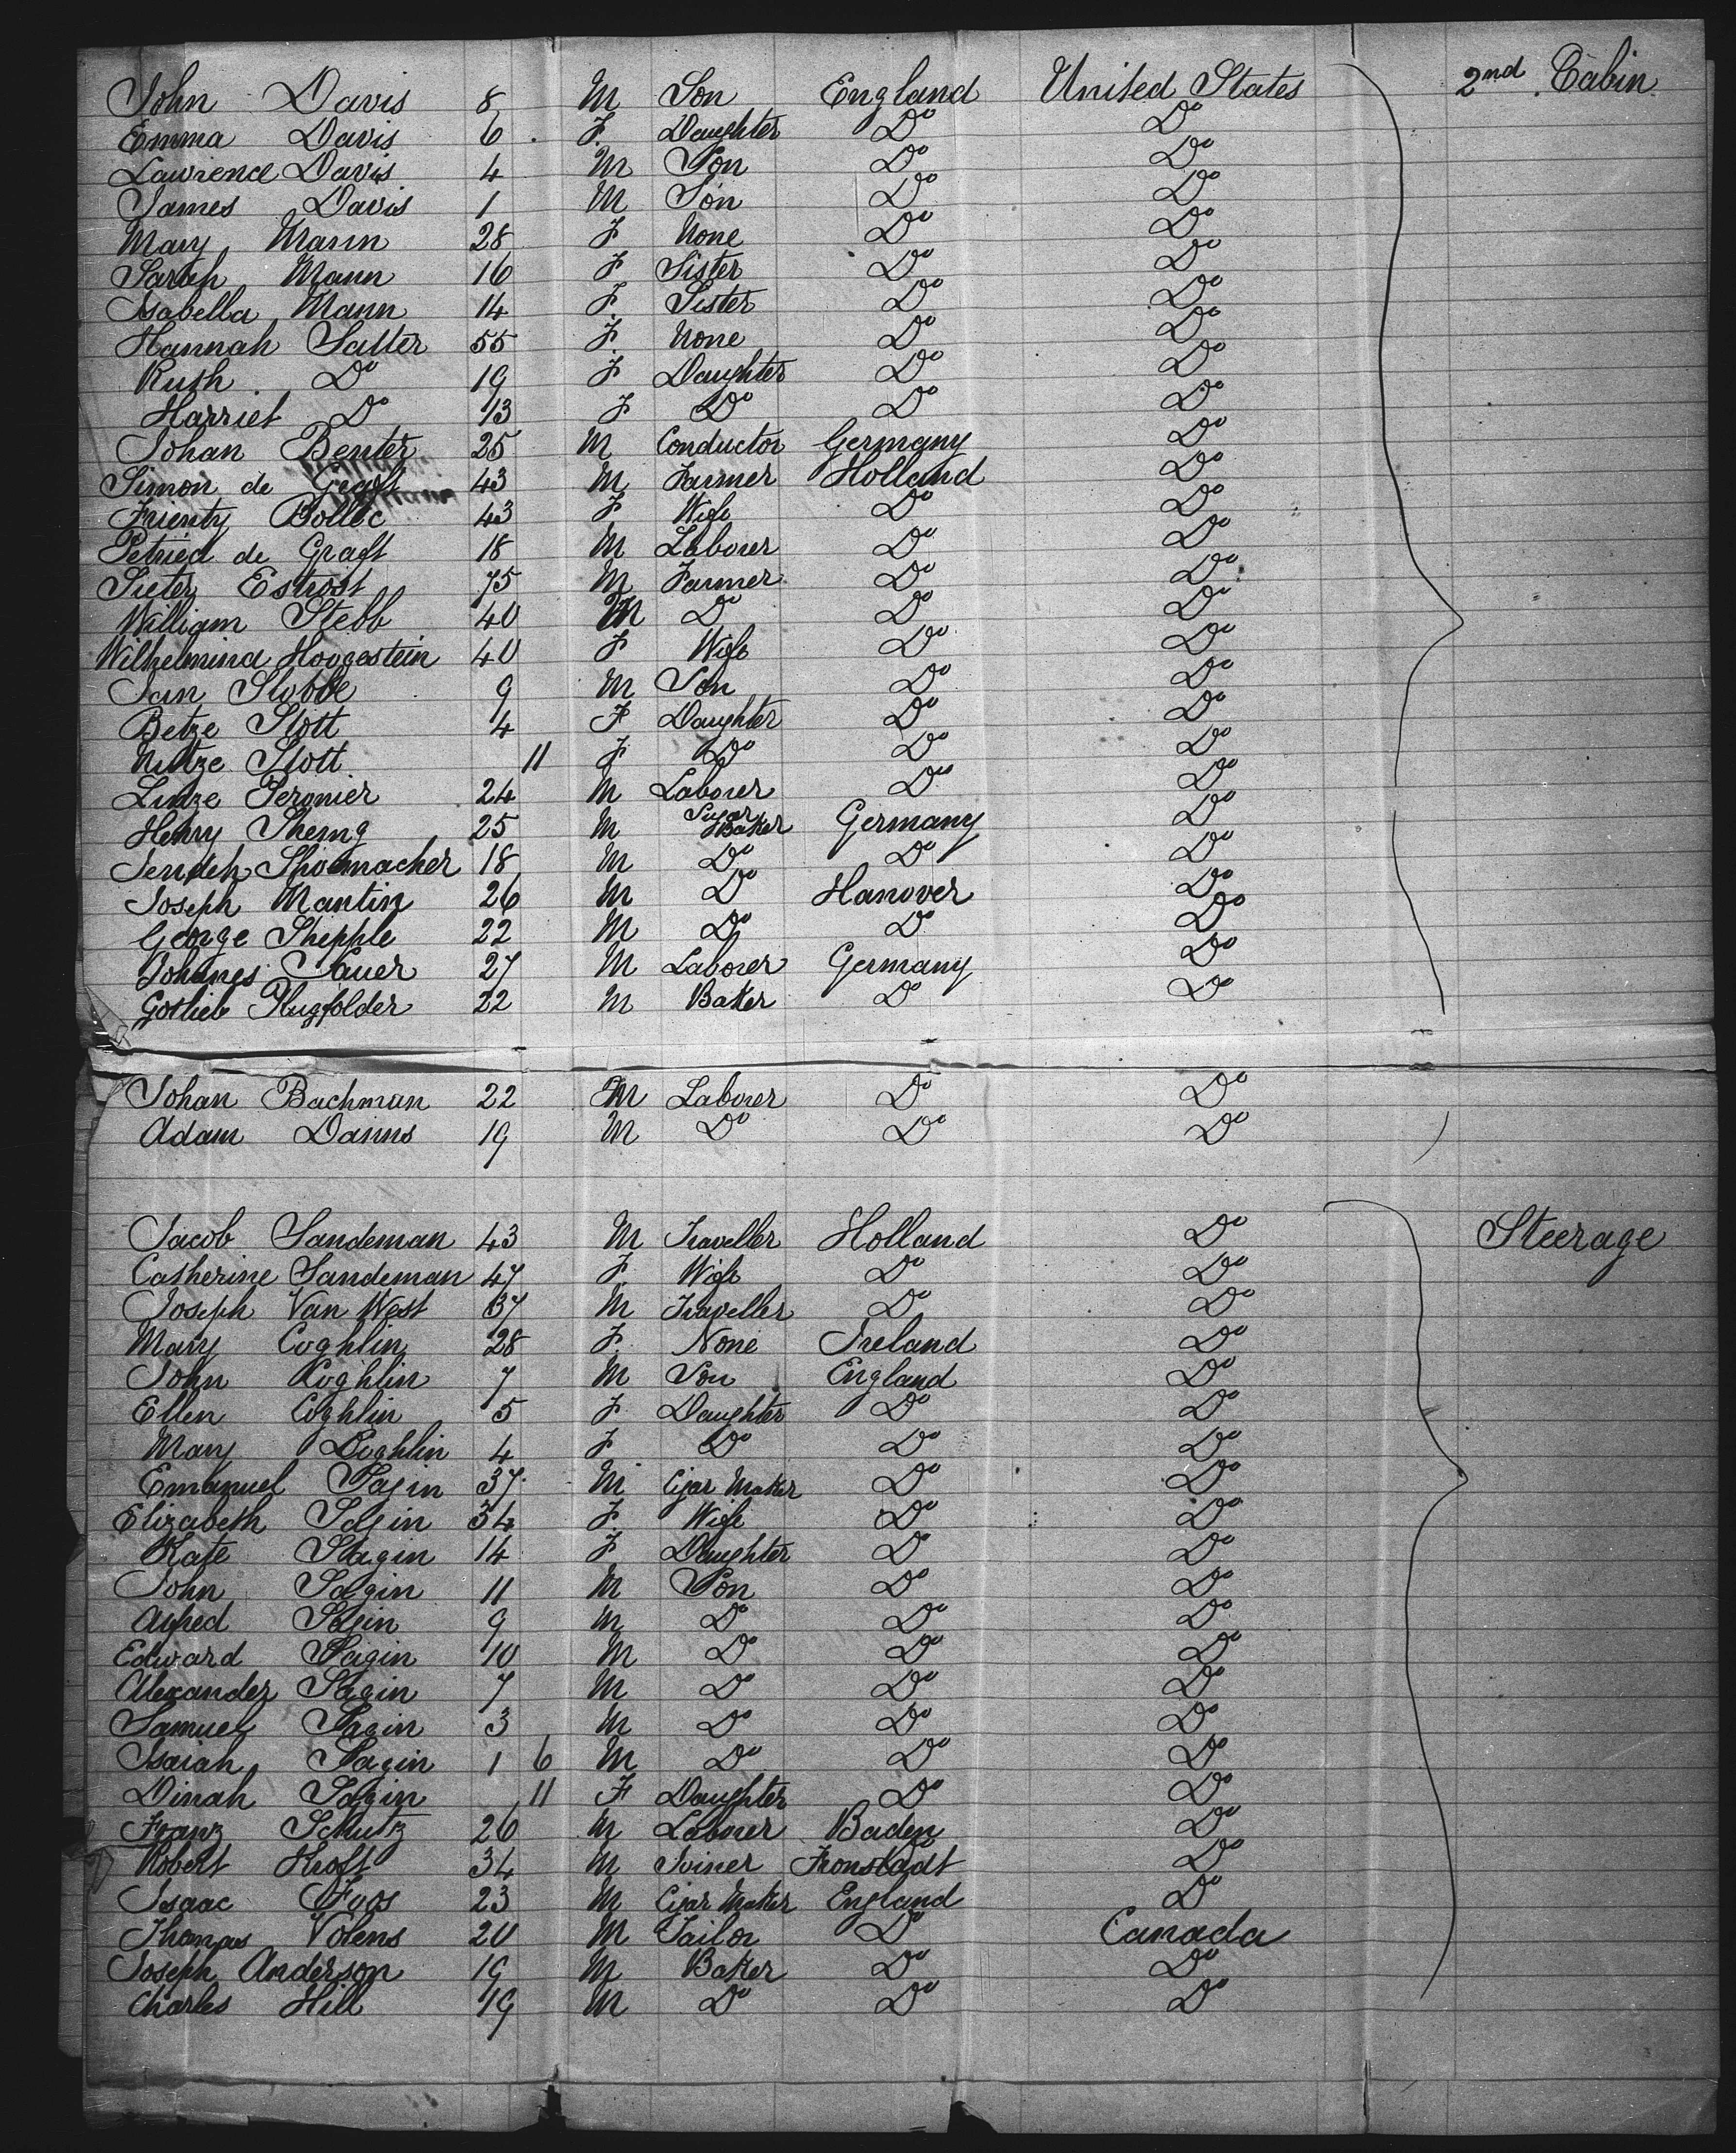 John Davis 8 M Son England United States 2nd Cabin
Emma Davis 6 F Daughter Do Do
Lawrence Davis 4 M Son Do Do
James Davis 1 M Son Do Do
Mary Mann 28 F None Do Do
Sarah Mann 16 F Sister Do Do
Isabella Mann 14 F Sister Do Do
Hannah Salter 55 F None Do Do
Ruth Do 19 F Daughter Do Do
Harriet Do 13 F Do Do Do
Johan Benter 25 M Conductor Germany Do
Simon de Graaft 43 M Farmer Holland Do
Frienty Bolloc 43 F Wife Do Do
de Graft 18 M Laborer Do Do
Pieter 75 M Farmer Do Do
William Stebb 40 M Do Do Do
Wilhelmina Hoogestein 40 F Wife Do Do
Jan Slobbe 9 M Son Do Do
Betze Slott 4 F Daughter Do Do
Slott 11 F Do Do Do
Peronier 24 M Laborer Do Do
Henry 25 M Sugar Baker Germany Do
Shoemacher 18 M Do Do Do
Joseph Mantin 26 M Do Hanover Do
George Shipple 22 M Do Do Do
Johanes Sauer 27 M Laborer Germany Do
Gotlieb Plugfolder 22 M Baker Do Do
Johan Bachman 22 M Laborer Do Do
Adam Danns 19 M Do Do Do
Jacob Sandeman 43 M Traveller Holland Do Steerage
Catherine Sandeman 47 F Wife Do Do
Joseph Van West 37 M Traveller Do Do
Mary Coghlin 28 F None Ireland Do
John Coghlin 7 M Son England Do
Ellen Coghlin 5 F Daughter Do Do
Mary Coghlin 4 F Do Do Do
Emanuel Sagin 37 M Cigar Maker Do Do
Elizabeth Sagin 34 F Wife Do Do
Kate Sagin 14 F Daughter Do Do
John Sagin 11 M Son Do Do
Alfred Sagin 9 M Do Do Do
Edward Sagin 10 M Do Do Do
Alexander Sagin 7 M Do Do Do
Samuel Sagin 3 M Do Do Do
Isaiah Sagin 1 6 M Do Do Do
Dinah Sagin 11 F Daughter Do Do
Franz Schutz 26 M Laborer Baden Do
Robert Kroft 34 M Joiner Fronstadt Do
Isaac Foos 23 M Cigar Maker England Do
Thomas Volens 20 M Tailor Do Canada
Joseph Anderson 19 M Baker Do Do
Charles Hill 19 M Do Do Do